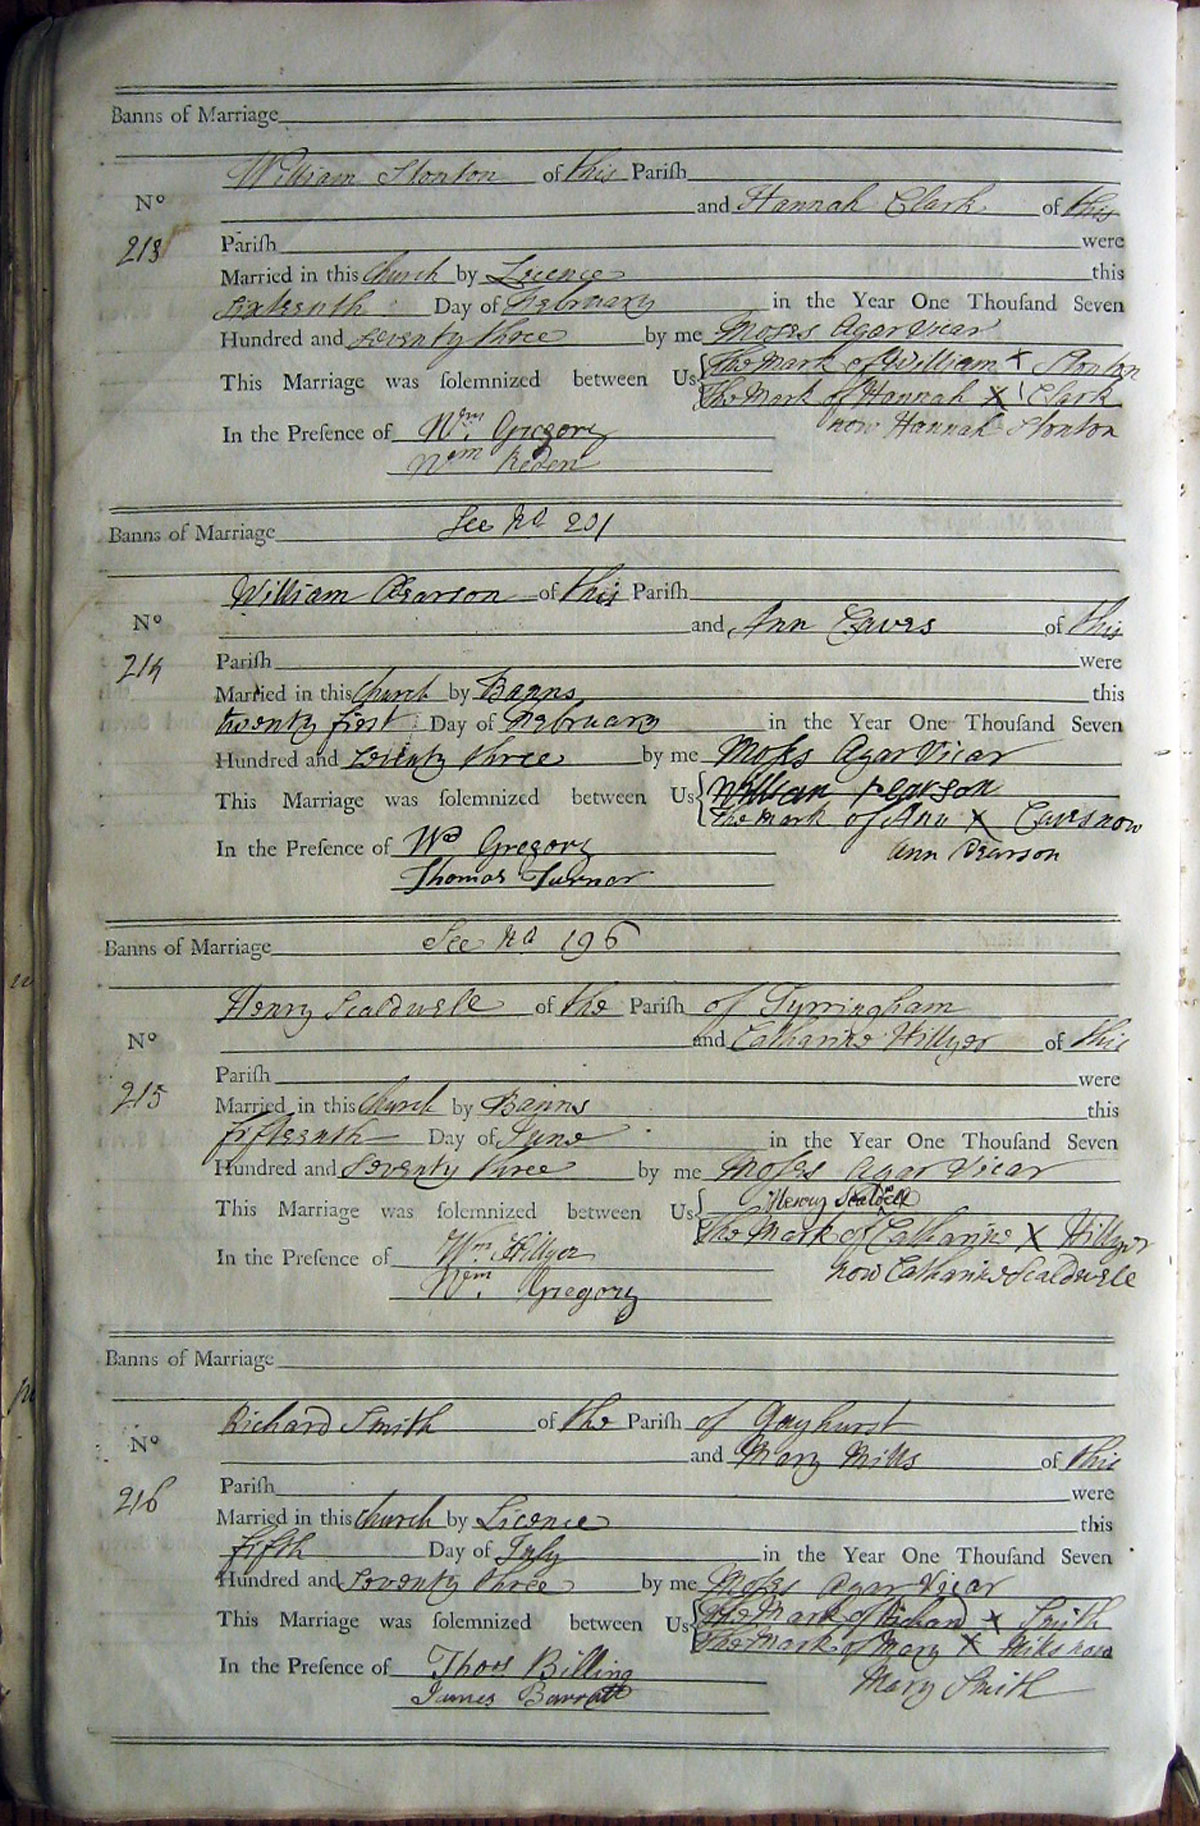 Banns of Marriage
William Stonton of this Pariſh
No and Hannah Clark of this
213 Pariſh were
Married in this Church by Licence this
sixteenth Day of February in the Year One Thouſand Seven
Hundred and seventy three by me Moses Agar Vicar
This Marriage was ſolemnized between Us The Mark of William X Stonton
The Mark of Hannah X Clark
now Hannah Stonton
In the Preſence of Wm. Gregory
Wm
Banns of Marriage See No 201
William Pearson of this Pariſh
No and Ann Eaves of this
214 Pariſh were
Married in this Church by Banns this
twenty first Day of February in the Year One Thouſand Seven
Hundred and seventy three by me Moses Agar Vicar
This Marriage was ſolemnized between Us William Pearson
The Mark of Ann X Eaves now
Ann Pearson
In the Preſence of Wm Gregory
Thomas Turner
Banns of Marriage See No 196
Henry Scaldwell of the Pariſh of Tyrringham
No and Catharine Hillyer of this
215 Pariſh were
Married in this Church by Banns this
fifteenth Day of June in the Year One Thouſand Seven
Hundred and Seventy three by me Moses Agar Vicar
This Marriage was ſolemnized between Us Henry
The Mark of Catharine X Hillyer
now Catharine Scaldwele
In the Preſence of Wm Hillyer
Wm. Gregory
Banns of Marriage
Richard Smith of the Pariſh of Gayhurst
No and Mary Mills of this
216 Pariſh were
Married in this Church by Licence this
fifth Day of July in the Year One Thouſand Seven
Hundred and Seventy three by me Moses Agar Vicar
This Marriage was ſolemnized between Us The Mark of Richard X Smith
The Mark of Mary X Mills now
Mary Smith
In the Preſence of Thos Billing
James Barratt